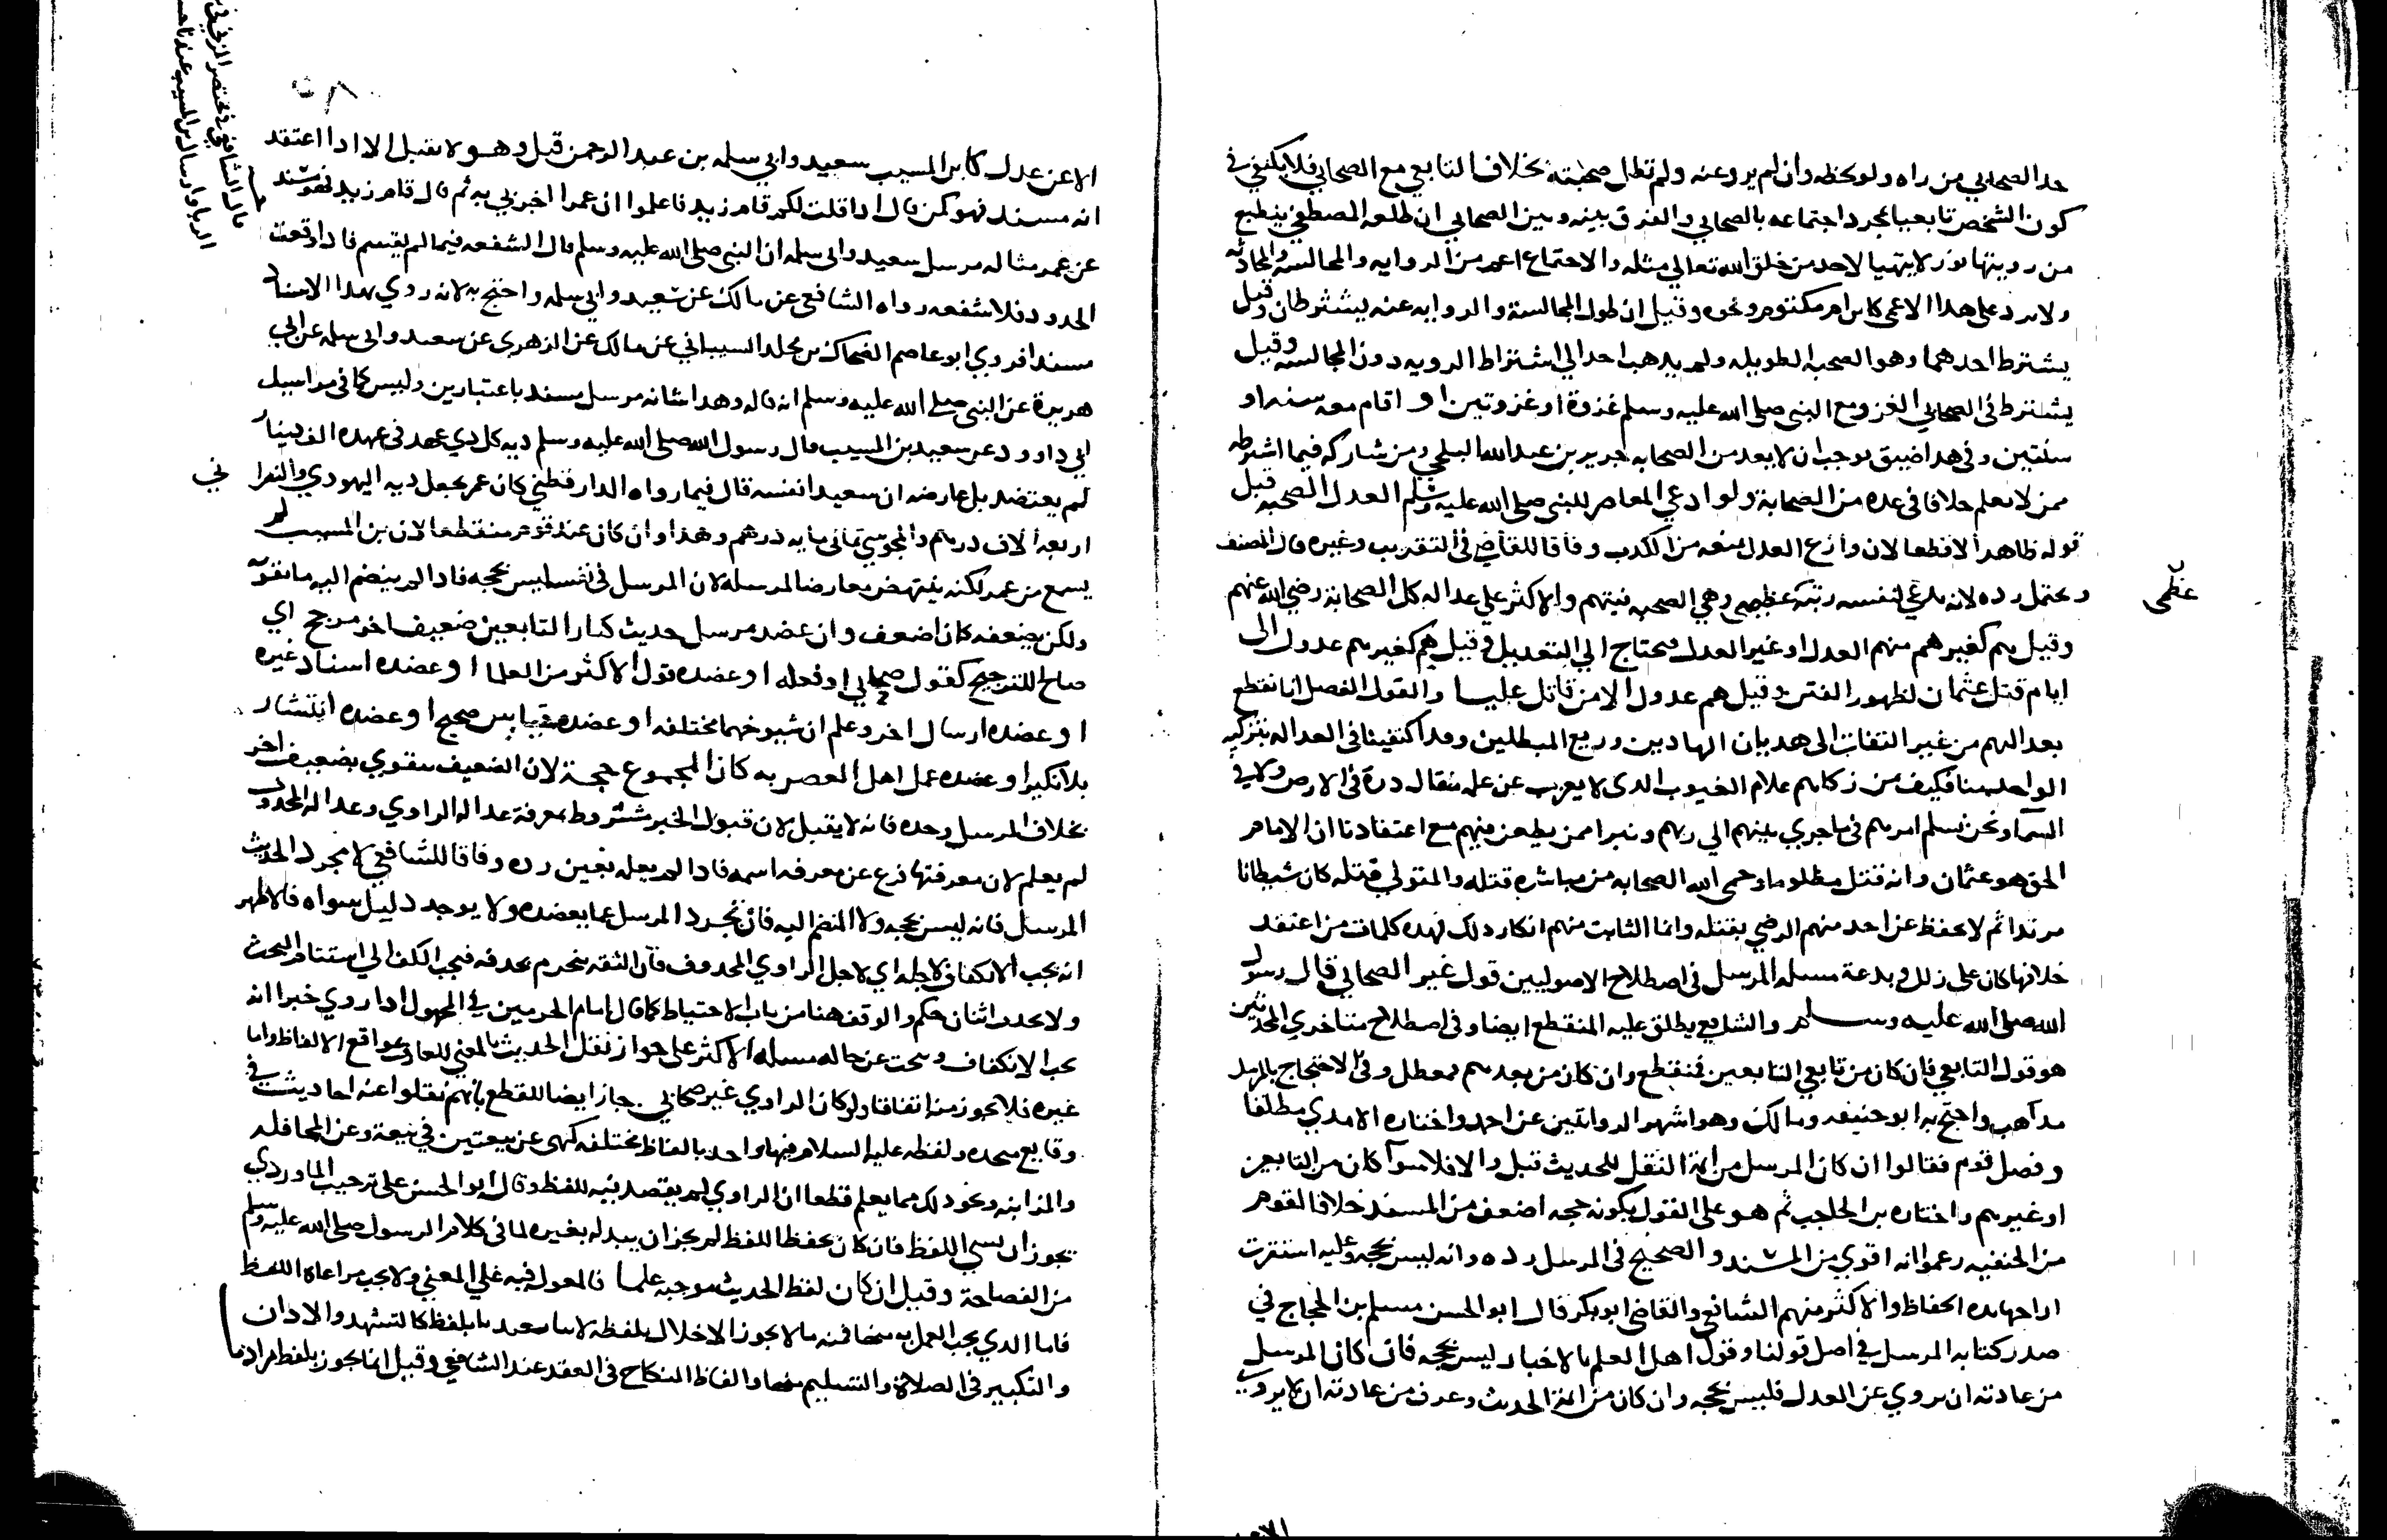 حد الصحابي من راه ولو لحظه وان لم يرو عنه ولم تطل صحبته بخلاف التابعي مع الصحابي فلا يكتفي في
كون الشخص تابعيا بمجرد اجتماعه بالصحابي والفرق بينه وبين الصحابي ان طلعه المصطفي ينطبع
من رويتها نور لا يتهيا لاحد من خلق الله تعالي مثله والاجتماع اعم من الروايه والمجالسه والمحادثه
ولا يرد علي هذا الاعمي كابن ام مكتوم ونحوه وقيل ان طول المجالسة والروايه عنه يشترطان وقيل
يشترط احدهما وهو الصحبه الطويله ولم يذهب احد الي اشتراط الرويه دون المجالسه وقيل
يشترط في الصحابي الغزو مع النبي صلي الله عليه وسلم غزوة او غزوتين او اقام معه سنه او
سنتين وفي هدا ضيق يوجب ان لا يعد من الصحابه جرير بن عبد الله البجلي ومن شاركه فيما اشترطه
ممن لا نعلم خلافا في عده من الصحابة ولو ادعي المعاصر للنبي صلي الله عليه وسلم العدل الصحبه قبل
قوله ظاهرا لا قطعا لان وازع العدل يمنعه من الكدب وفاقا للقاضي في التقريب وغيره قال المصنف
ويحتمل رده لانه يدعي لنفسه رتبه عظيمه وهي الصحبه فيتهم والاكثر علي عداله كل الصحابة رضي الله عنهم
عظمى
وقيل هم كغيرهم منهم العدل او غير العدل فيحتاج الي التعديل وقيل هم كغيرهم عدول الي
ايام قتل عثمان لظهور الفتن وقيل هم عدول الا من قاتل عليا والقول الفصل انا نقطع
بعدالتهم من غير التفات الي هذيان الهادين وزيغ المبطلين وقد اكتفينا في العداله بتزكيه
الواحد منا فكيف من زكاهم علام الغيوب الدي لا يعزب عن علمه مثقال درة في الارض ولا في
السما ونحن نسلم امرهم في ما جري بينهم الي ربهم ونبرا ممن يطعن فيهم مع اعتقادنا ان الامام
الحق هو عثمان وانه قتل مظلوما وحمي الله الصحابه من مباشره قتله والمتولي قتله كان شيطانا
مرتدا ثم لا يحفظ عن احد منهم الرضي بقتله وانما الثابت منهم انكار دلك فهده كلمات من اعتقد
خلافها كان علي زلل وبدعة مسله المرسل في اصطلاح الاصوليين قول غير الصحابي قال رسول
الله صلي الله عليه وسلم والشايع يطلق عليه المنقطع ايضا وفي اصطلاح متاخري المحدثين
هو قول التابعي فان كان من تابعي التابعين فمنقطع وان كان من بعدهم فمعطل وفي الاحتجاج بالمرسل
مداهب واحتج به ابو حنيفه ومالك وهو اشهر الروايتين عن احمد واختاره الامدي مطلقا
وفصل قوم فقالوا ان كان المرسل من ايمة النقل للحديث قبل والا فلا سوا كان من التابعين
او غيرهم واختاره بن الحاجب ثم هو علي القول بكونه حجه اضعف من المسند خلافا لقوم
من الحنفيه زعموا انه اقوي من المسند والصحيح في المرسل رده وانه ليس بحجه وعليه استقرت
ارا جهابده الحفاظ والاكثر منهم الشافعي والقاضي ابو بكر قال ابو الحسن مسلم بن الحجاج في
صدر كتابه المرسل في اصل قولنا وقول اهل العلم بالاخبار ليس بحجه فان كان المرسل
من عادته ان يروي عن العدل فليس بحجه وان كان من ايمة الحديث وعرف من عادته ان لا يروي
الا عن
٥٨
الا عن عدل كابن المسيب سعيد وابي سلمه بن عبد الرحمن قبل وهو لا يقبل الا ادا اعتقد
انه مسند فهو كمن قال ادا قلت لكم قام زيد فاعلموا ان عمرا اخبرني به ثم قال قام زيد فهو مسند
عن عمر مثاله مرسل سعيد وابي سلمه ان النبي صلي الله عليه وسلم قال الشفعه فيما لم يقسم فادا وقعت
الحدود فلا شفعه رواه الشافعي عن مالك عن سعيد وابي سلمه واحتج به لانه روي بهدا الاسناد
مسندا فروي ابو عاصم الضحاك بن مخلد الشيباني عن مالك عن الزهري عن سعيد وابي سلمه عن ابي
هريرة عن النبي صلي الله عليه وسلم انه قاله وهدا شانه مرسل مسند باعتبارين وليس كما في مراسيل
ابي داوود عن سعيد بن المسيب قال رسول الله صلي الله عليه وسلم ديه كل دي عهد في عهده الف دينار
لم يعتضد بل عارضه ان سعيدا نفسه قال فيما رواه الدارقطني كان عمر يجعل ديه اليهودي والنصرا
ني
اربعه الاف درهم والمجوسي ثماني مايه درهم وهذا وان كان عند قوم منقطعا لان بن المسيب لم
يسمع من عمر لكنه ينتهض معارضا لمرسله لان المرسل في نفسه ليس بحجه فادا لم ينضم اليه ما يقويه
ولكن يضعفه كان اضعف وان عضد مرسل حديث كبار التابعين ضعيف اخر مرجح اي
صالح للترجيح كقول صحابي او فعله او عضده قول الاكثر من العلما او عضده اسناد غيره
او عضده ارسال اخر وعلم ان شيوخهما مختلفه او عضده قياس صحيح او عضده انتشار
بلا نكير او عضده عمل اهل العصر به كان المجموع حجة لان الضعيف يتقوي بضعيف اخر
بخلاف المرسل وحده فانه لا يقبل لان قبول الخبر مشروط بمعرفة عداله الراوي وعداله المحدوف
لم يعلم لان معرفتها فرع عن معرفه اسمه فادا لم يعلم تعين رده وفاقا للشافعي لا مجرد الحديث
المرسل فانه ليس بحجه ولا المنضم اليه فان تجرد المرسل عما يعضده ولا يوجد دليل سواه فالاظهر
انه يجب الانكفاف لاجله اي لاجل الراوي المحدوف فان الثقه يتحرم بحدفه فيجب الكف الي استتمام البحث
ولا يحدد اثنان حكم والوقف هنا من باب الاحتياط كما قال امام الحرمين في المجهول ادا روي خبرا انه
يجب الانكفاف ويبحث عن حاله مسله الاكثر علي جواز نقل الحديث بالمعني للعارف بمواقع الالفاظ واما
غيره فلا يجوز منه اتفاقا ولو كان الراوي غير صحابي جاز ايضا للقطع بانهم نقلوا عنه احاديث في
وقايع متحده ولفظه عليه السلام فيها واحد بالفاظ مختلفه كنهي عن بيعتين في بيعة وعن المحاقله
والمزابنه ونحو دلك مما يعلم قطعا ان الراوي لم يقصد فيه للفظ وقال ابو الحسن علي بن حبيب الماوردي
يجوز ان نسي اللفظ فان كان يحفظ اللفظ لم يجز ان يبدله بغيره لما في كلام الرسول صلي الله عليه وسلم
من الفصاحة وقيل ان كان لفظ الحديث موجبه علما فالمعول فيه علي المعني ولا يجب مراعاة اللفظ
فاما الدي يجب العمل به منها فمنه ما لا يجوز الاخلال بلفظه لا سيما تعبد بلفظ كالتشهد والادان
والتكبير في الصلاة والتسليم منها والفاظ النكاح في العقد عند الشافعي وقيل انما يجوز بلفظ مرادف
قال الشافعي في مختصر المزني في
الربا وارسال بن المسيب عندنا حسن